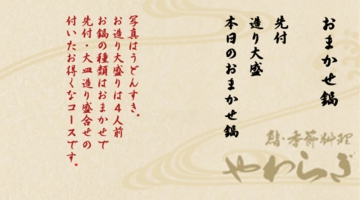 おまかせ鍋
先付
造り大盛り
本日のおまかせ鍋
写真はうどんすき。
お造り大盛りは4人前
お鍋の種類はおまかせで
先付・大皿造り盛合せの
付いたお得くなコースです。
鮨・季節料理
やわらぎ